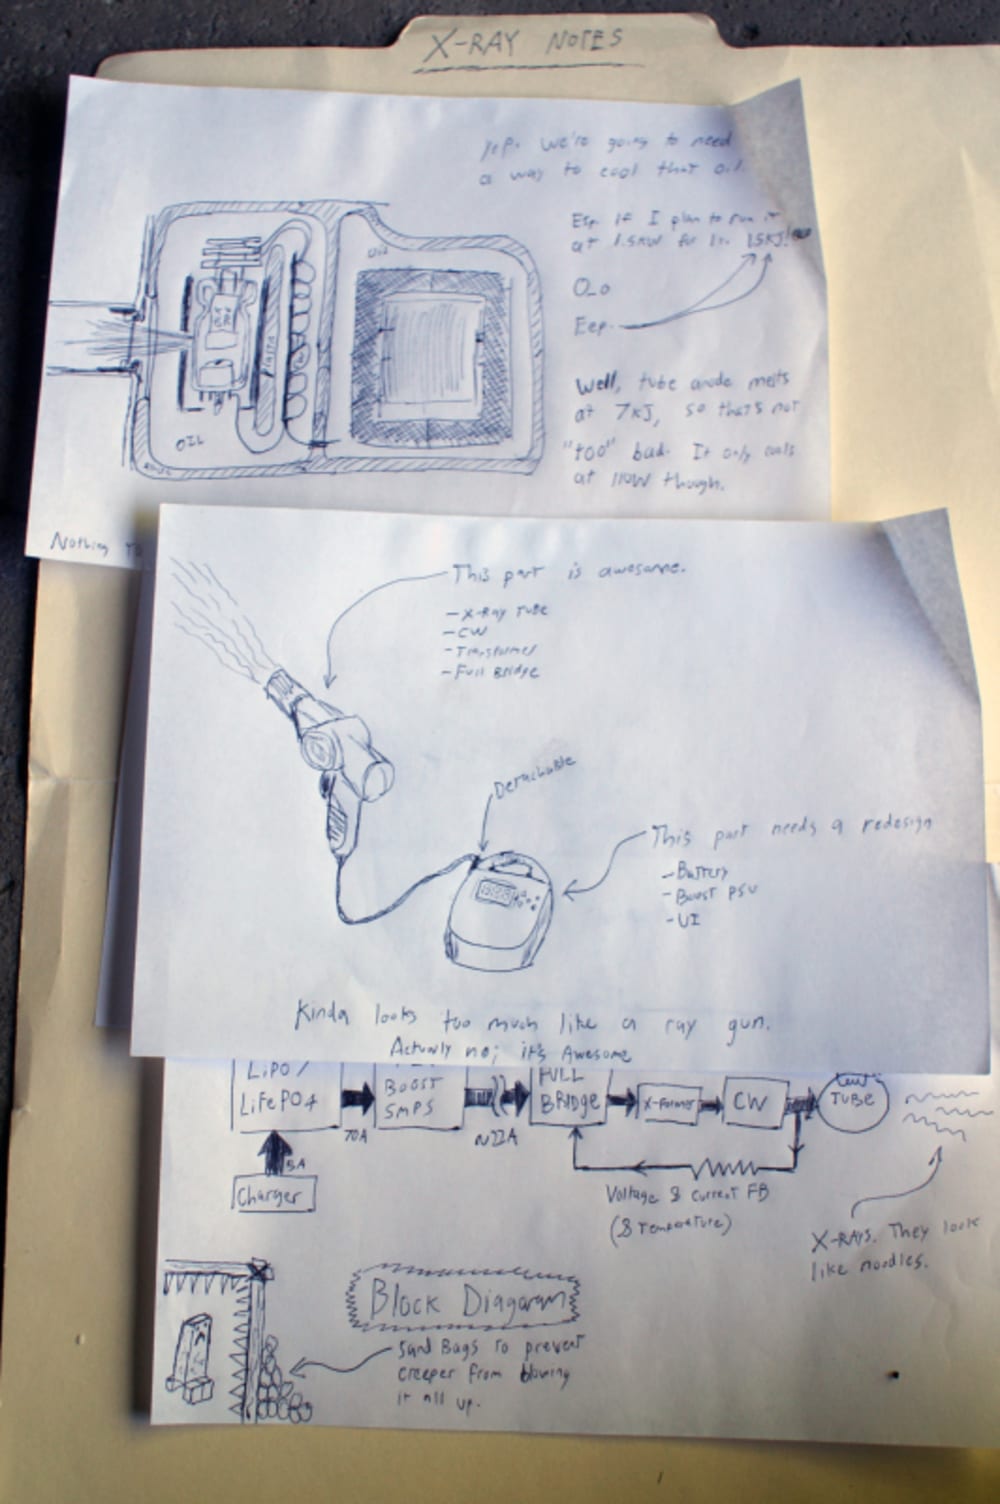 X-RAY NOTES
Yep. We're going to need
a way to cool that oil.
Esp. if I plan to run it
at 1.5kW for 1s. 1.5KJ!
O_o
Eep.
Well, tube anode melts
at 7KJ, so that's not
"too" bad. It only cools
at 110W though.
Oil
OIL
Nothing to
This part is awesome.
- X-Ray Tube
- CW
- Transformer
- Full Bridge
Detachable
This part needs a redesign
- Battery
- Boost PSU
- UI
Kinda looks too much like a ray gun.
Actually no; it's Awesome
LiPO /
LiFePO4
BOOST
SMPS
FULL
BRIDGE
X-Former
CW
TUBE
70A
~22A
5A
Charger
Voltage & Current FB
(& Temperature)
X-RAYS. They look
like noodles.
Block Diagaram
Sand Bags to prevent
creeper from blowing
it all up.